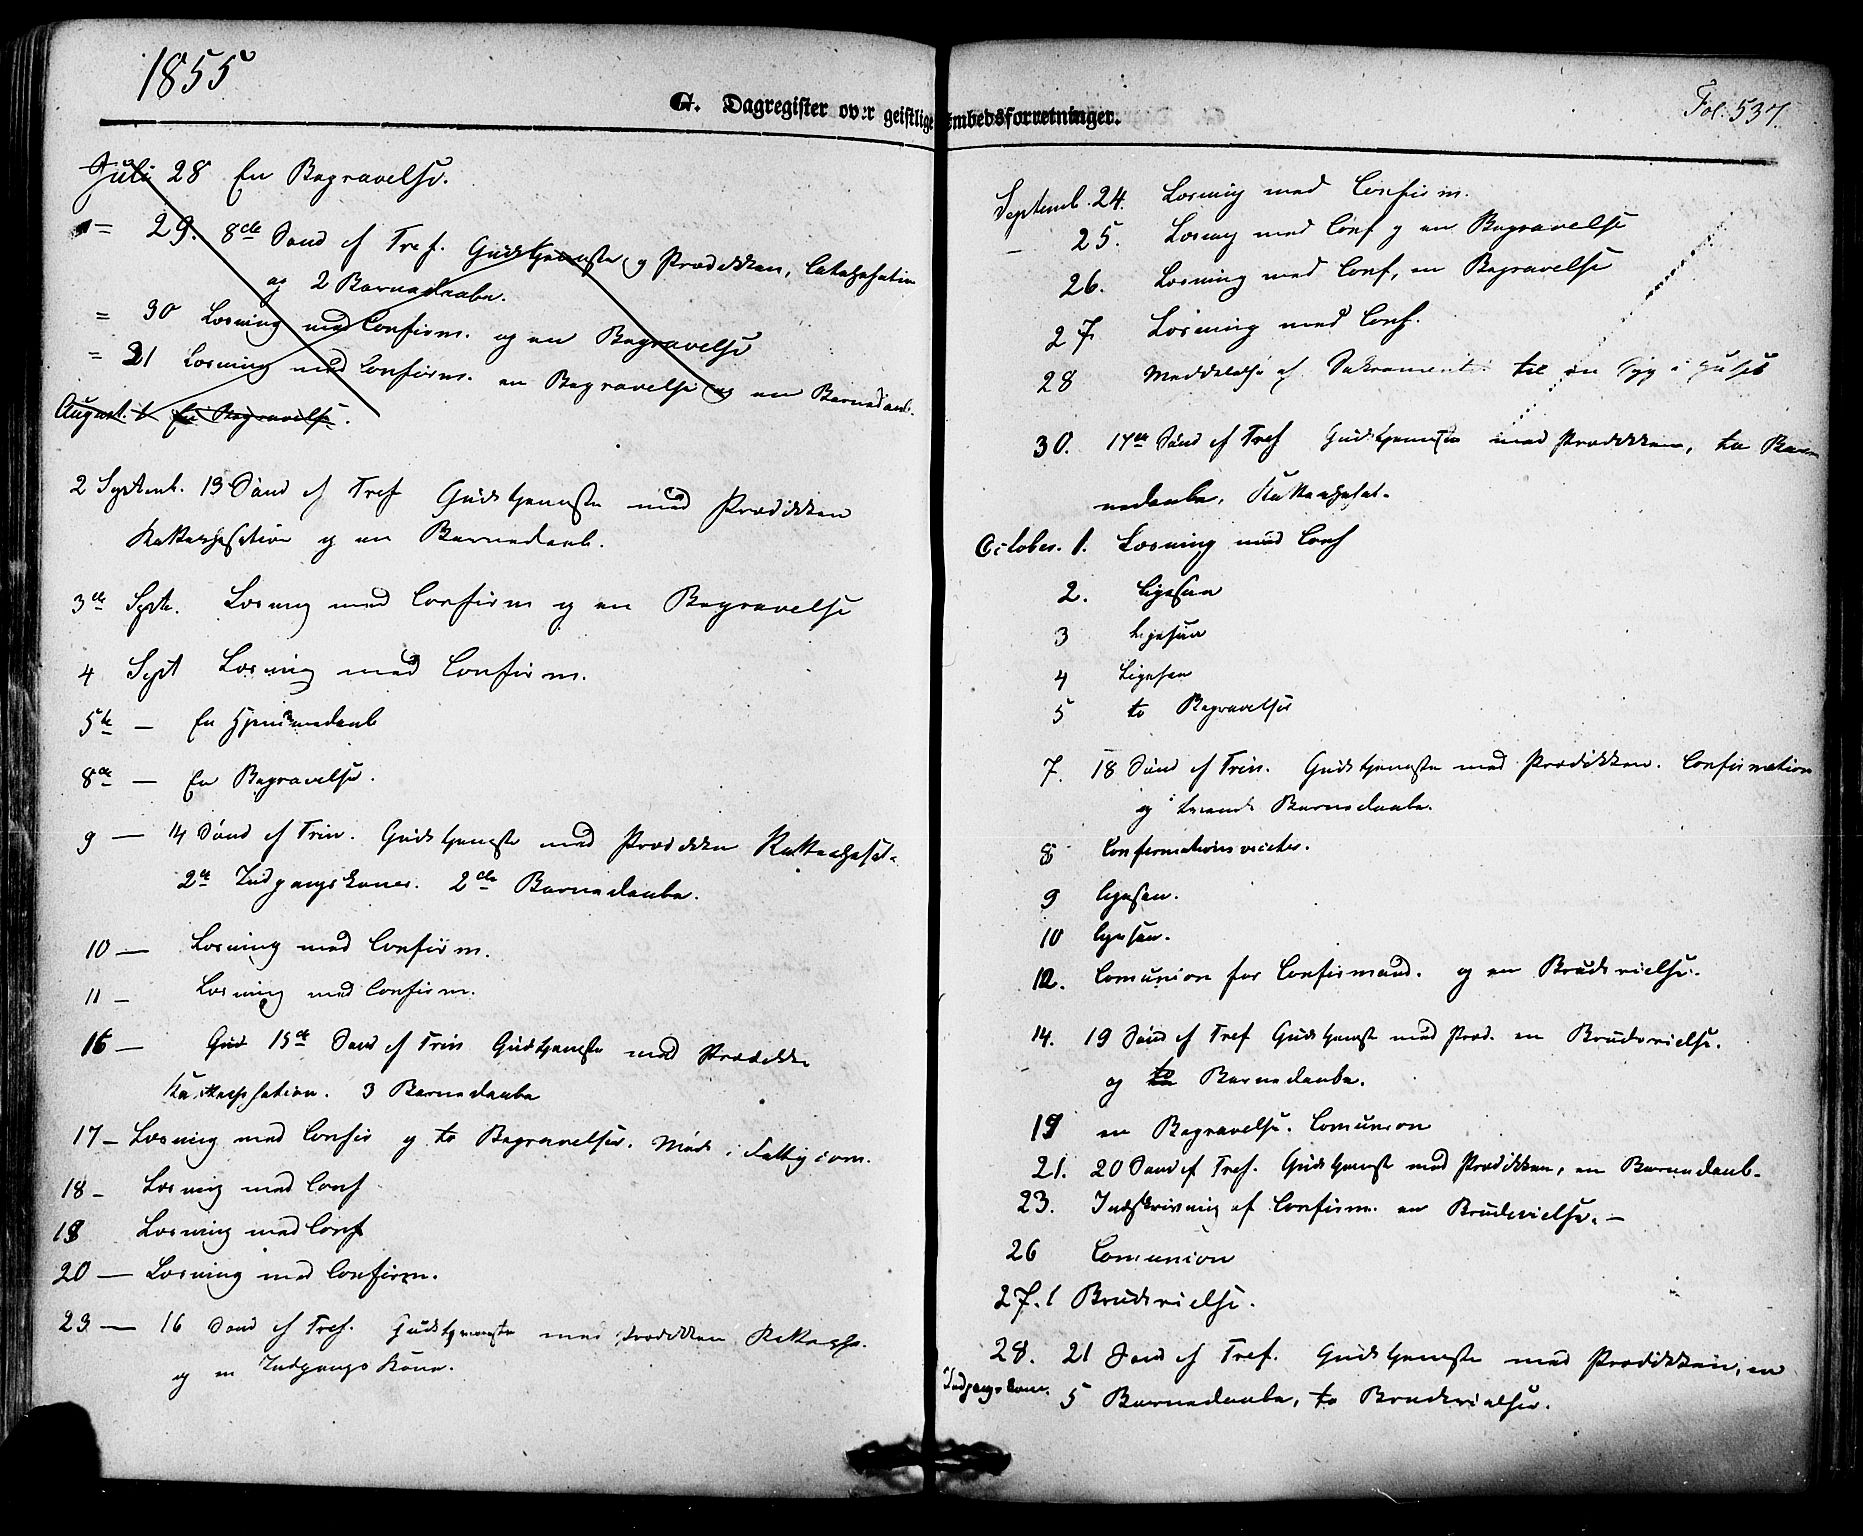 1855
G. Dagregister over geistlige Embedsforretninger.
Fol. 537.
Juli 28 En Begravelse.
= 29. 8de Sønd ef Tref. Gudstjeneste og Prædikken, Catechesation
og 2 Barnedaabe.
= 30 Læsning med Confirm. og en Begravelse
= 31 Læsning med Confirm. en Begravelse og en Barnedaab.
August 1 En Begravelse.
2 Septemb. 13 Sønd ef Tref Gudstjeneste med Prædikken
Kattechesation og en Barnedaab.
3de Septe. Læsning med Confirm og en Begravelse
4 Sept Læsning med Confirm.
5te — En Hjemmedaab
8de — En Begravelse.
9 — 14 Sønd ef Trin. Gudstjeneste med Prædikken Kattechesat.
2de Indgangskoner. 2de Barnedaabe.
10 — Læsning med Confirm.
11 — Læsning med Confirm.
16 — Gud 15de Sønd ef Trin Gudstjeneste med Prædikke
Kattechesation. 3 Barnedaabe
17 — Læsning med Confir og to Begravelser. Møde i Fattigcom.
18 — Læsning med Conf
19 Læsning med Conf
20 — Læsning med Confirm.
23 — 16 Sønd ef Tref. Gudstjeneste med Prædikken Katteche.
og en Indgangs Kone.
Septemb. 24. Læsning med Confirm.
— 25. Læsning med Conf og en Begravelse
26. Læsning med Conf, en Begravelse
27. Læsning med Conf.
28 Meddelelse af Sakramentet til en Syg i Huset
30. 17de Sønd ef Tref Gudstjeneste med Prædikken, to Bar
nedaabe, Kattechesat.
October. 1. Læsning med Conf
2. Ligesaa
3 Ligesaa
4 Ligesaa
5 to Begravelser
7. 18 Sønd ef Trin. Gudstjeneste med Prædikken. Confirmation
og Barnedaabe.
8 Confirmationsvidter.
9 ligesaa.
10 ligesaa.
12. Comunion for Confirmand. og en Brudevielse.
14. 19 Sønd ef Tref Gudstjenest med Præd. en Brudevielse.
og to Barnedaabe.
19 en Begravelse. Comunion
21. 20 Sønd ef Tref. Gudstjeneste med Prædikken, en Barnedaab.
23. Indskrivning af Confirm. en Brudevielse. —
26 Comunion
27. 1 Brudevielse.
28. 21 Sønd ef Tref. Gudstjeneste med Prædikken, en
Indgangskone. 5 Barnedaabe, to Brudevielser.